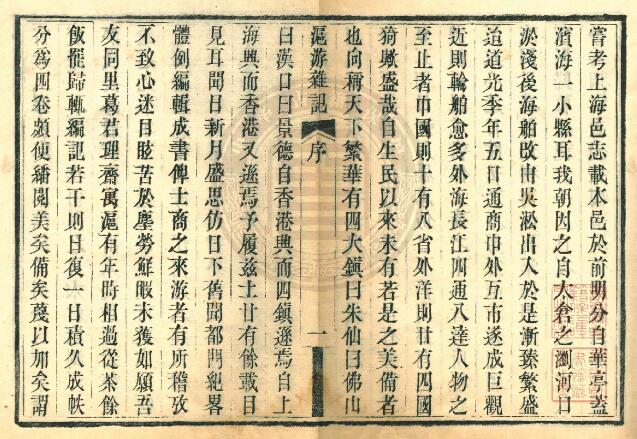 嘗考上海邑志載本邑於前明分自華亭蓋
濱海一小縣耳我朝因之自太倉之瀏河口
淤淺後海舶改由吳淞出入於是漸臻繁盛
迨道光季年五口通商中外互市遂成巨觀
近則輪舶愈多外海長江四通八達人物之
至止者中國則十有八省外洋則廿有四國
猗歟盛哉自生民以來未有若是之美備者
也向稱天下繁華有四大鎮曰朱仙曰佛山
滬游雜記 序 一
曰漢口曰景德自香港興而四鎮遜焉自上
海興而香港又遜焉予履茲土廿有餘載目
見耳聞日新月盛思仿日下舊聞都門紀畧
體例編輯成書俾士商之來游者有所稽攷
不致心迷目眩苦於塵勞鮮暇未獲如願吾
友同里葛君理齋寓滬有年時相過從茶餘
飯罷歸輒編記若干則日復一日積久成帙
分爲四卷頗便繙閱美矣備矣蔑以加矣謂